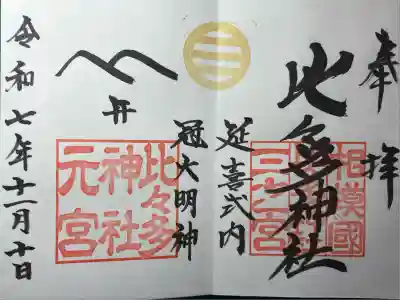 奉拝
相模國
三之宮
比々多神社
延喜式内
冠大明神
比々多
神社
元宮
令和七年十一月十日